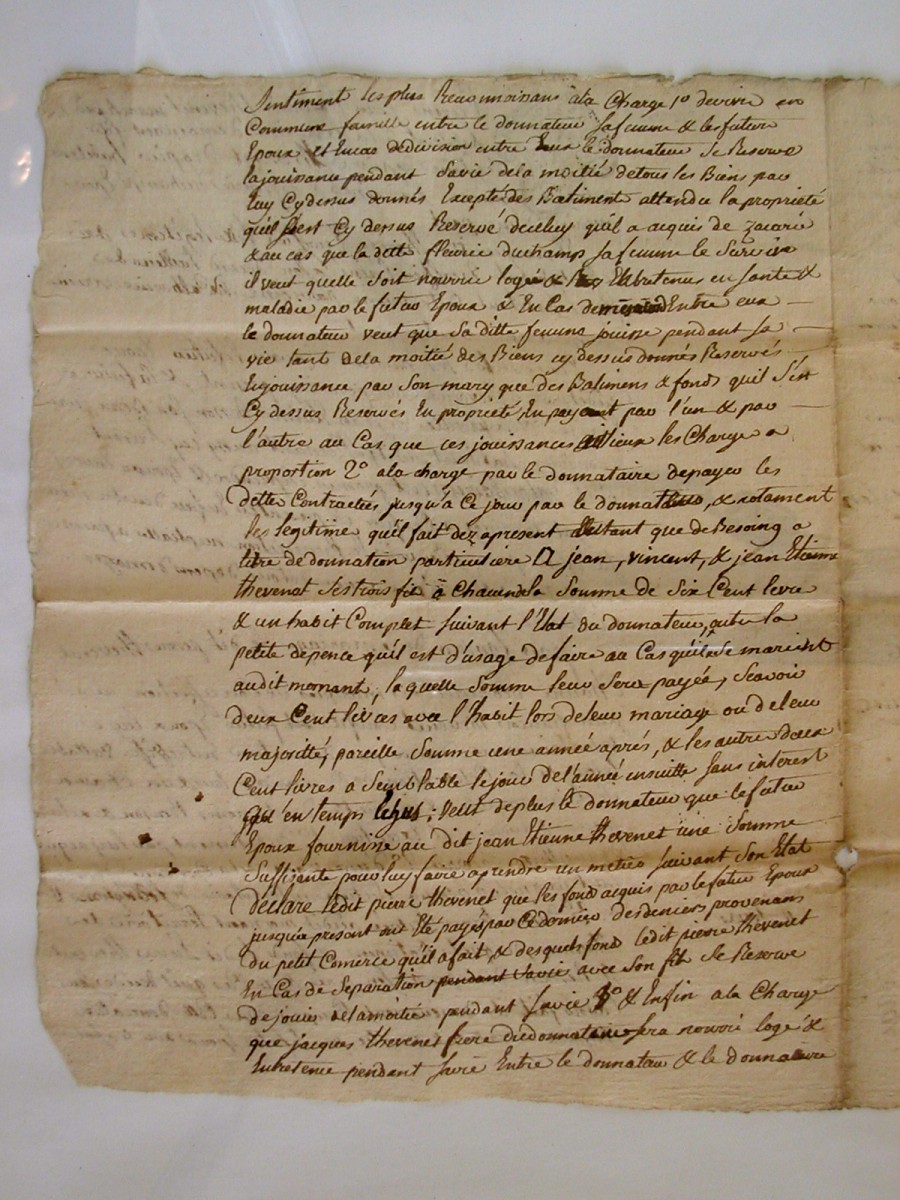 Sentiment les plus Reconnoissans à la Charge 1o de vivre en
Commune famille entre le donnateur sa femme & les future
Epoux et En cas de division entre Eux le donnateur se Reserve
la jouissance pendant sa vie de la moitié de tous les Biens par
luy Cy dessus donnés Excepté des Batiment attendu la propriété
qu'il s'est Cy dessus Reservé de celuy qu'il a acquis de zacarie
& au cas que la ditte fleurie duchamp sa femme le Survive
il veut quelle soit nourrie logée & Entretenue en santé &
maladie par le futur Epoux & En Cas de Entre eux
le donnateur veut que sa ditte femme jouisse pendant sa
vie tant de la moitié des Biens cy dessus donnés Reservés
En jouissance par son mary que des Batimens & fonds qu'il s'est
Cy dessus Reservés En propriété En payant par l'un & par
l'autre au Cas que ces jouissances ait lieux les Charge a
proportion 2o a la charge par le donnataire de payer les
dette Contractées jusqu'a ce jour par le donnateur, & notament
les legitime qu'il fait dez apresent Autant que de Besoing a
titre de donnation particuliere A jean, vincent, & jean Etienne
thevenet ses trois fils à Chacun la Somme de Six Cent livre
& un habit Complet suivant l'Etat du donnateur, outre la
petite depence qu'il est d'usage de faire au Cas qu'ils se marient
audit moment, la quelle Somme leur Sera payée, Scavoir
deux Cent livres avec l'habit lors de leur mariage ou de leur
majoritté, pareille Somme une année aprés, & les autre deux
Cent livres a Semblable le jour de l'année ensuitte sans interest
qu'en temps ; veut de plus le donnateur que le futur
Epoux fournisse au dit jean Etienne thevenet une Somme
Suffisante pour luy faire aprendre un metier suivant Son Etat
déclare ledit pierre thevenet que les fond acquis par le futur Epoux
jusqu'a present ont Eté payés par Ce dernier des deniers provenans
du petit Comerce qu'il a fait, & desquels fond ledit pierre thevenet
En Cas de Separation pendant sa vie avec Son fils Se Reserve
de jouir de la moitié pendant sa vie 3o & Enfin a la Charge
que jacques thevenet frere du donnateur sera nourri logé &
Entretenu pendant sa vie Entre le donnateur & le donnataire